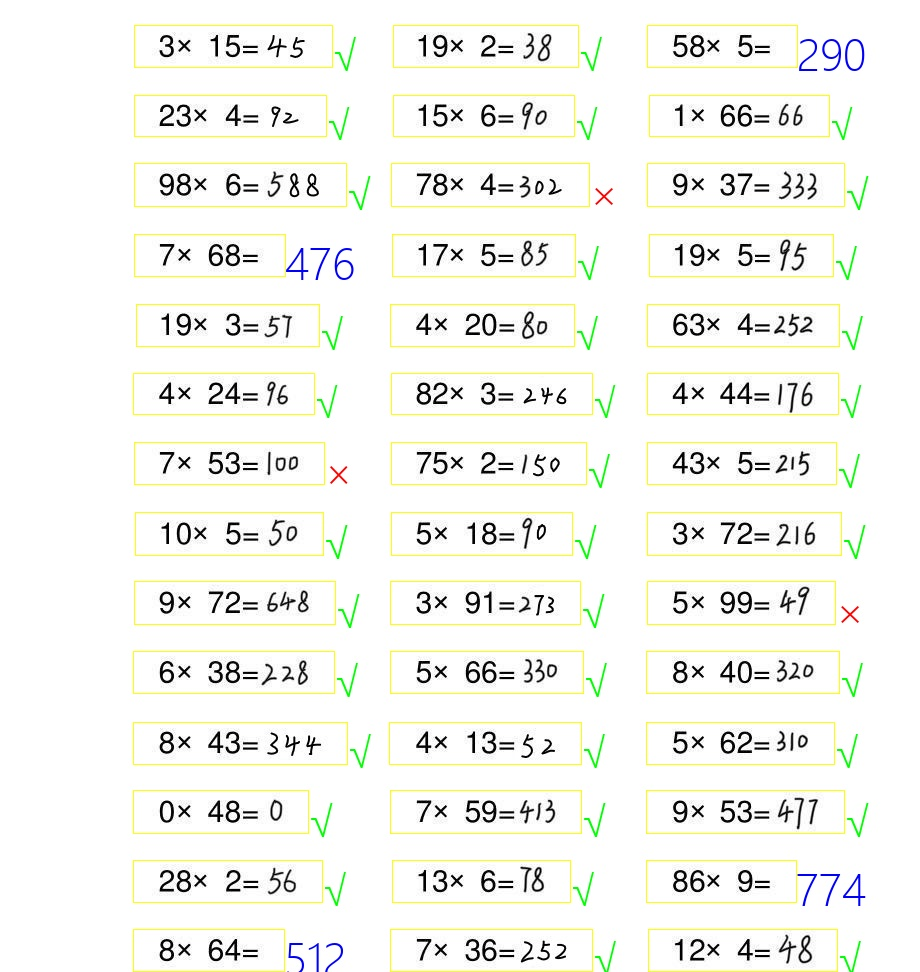 3× 15=45√ 19× 2=38√ 58× 5=290
23× 4=92√ 15× 6=90√ 1× 66=66√
98× 6=588√ 78× 4=302× 9× 37=333√
7× 68=476 17× 5=85√ 19× 5=95√
19× 3=57√ 4× 20=80√ 63× 4=252√
4× 24=96√ 82× 3=246√ 4× 44=176√
7× 53=100× 75× 2=150√ 43× 5=215√
10× 5=50√ 5× 18=90√ 3× 72=216√
9× 72=648√ 3× 91=273√ 5× 99=49×
6× 38=228√ 5× 66=330√ 8× 40=320√
8× 43=344√ 4× 13=52√ 5× 62=310√
0× 48=0√ 7× 59=413√ 9× 53=477√
28× 2=56√ 13× 6=78√ 86× 9=774
8× 64=512 7× 36=252√ 12× 4=48√